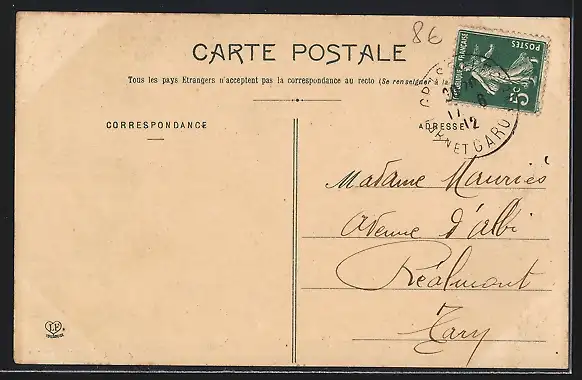 86
CARTE POSTALE
Tous les pays Etrangers n'acceptent pas la correspondance au recto (Se renseigner à la
CORRESPONDANCE
ADRESSE
REPUBLIQUE FRANÇAISE
POSTES
5c
17 6
12
ET GARONNE
Madame Mauriès
Avenue d'albi
Réalmont
Tarn